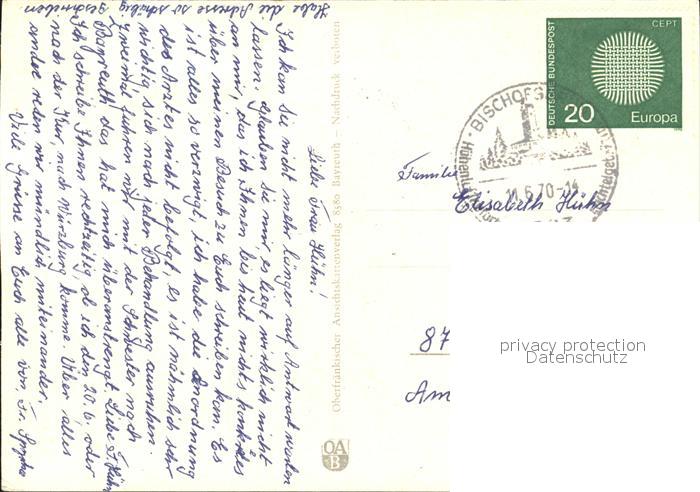 Habe die Adresse so schäbig geschrieben
Liebe Frau Hühn!
Ich kan Sie nicht mehr länger auf Antwort warten
lassen. Glauben Sie mir es liegt wirklich nicht
an mir, das ich Ihnen bis heut nichts konkretes
über meinen Besuch zu Euch schreiben kan. Es
ist alles so verzwigt, ich habe die Anordnung
des Arztes nicht befolgt, es ist nähmlich sehr
wichtig sich nach jeder Behandlung ausruhen.
Zweimal fuhren wir mit der Schwester nach
Bayreuth das hat mich überanstrengt Liebe Fr Hühn
Ich schreibe Ihnen rechtzeitig, ob ich den 20.6. oder
nach der Kur, nach Würzburg komme. Über alles
andre reden wir mündlich miteinander.
Viele Grüsse an Euch alle von Fr.
Oberfränkischer Ansichtskartenverlag 8580 Bayreuth – Nachdruck verboten
OA
B
DEUTSCHE BUNDESPOST
CEPT
20
Europa
BISCHOFS
11.6.70-14
Familie
Elisabeth Hühn
87
Am
privacy protection
Datenschutz